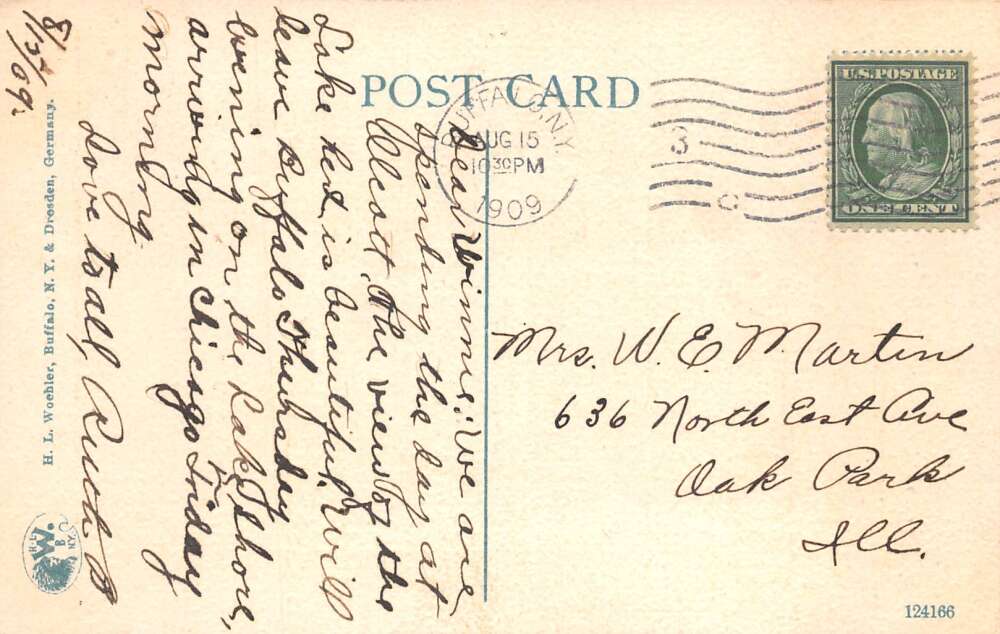 POST CARD
U.S. POSTAGE
ONE CENT
BUFFALO, N.Y.
AUG 15
10 30 PM
1909
3
C
Dear Winnie: We are
spending the day at
Olcott. The view of the
Lake here is beautiful. Will
leave Buffalo Thursday
evening on the Lake Shore,
arriving in Chicago Friday
morning.
Love to all,
8/15/09.
Mrs. W. E. Martin
636 North East Ave
Oak Park
Ill.
H. L. Woehler, Buffalo, N. Y. & Dresden, Germany.
H.L.
W.
B
N.Y.
124166